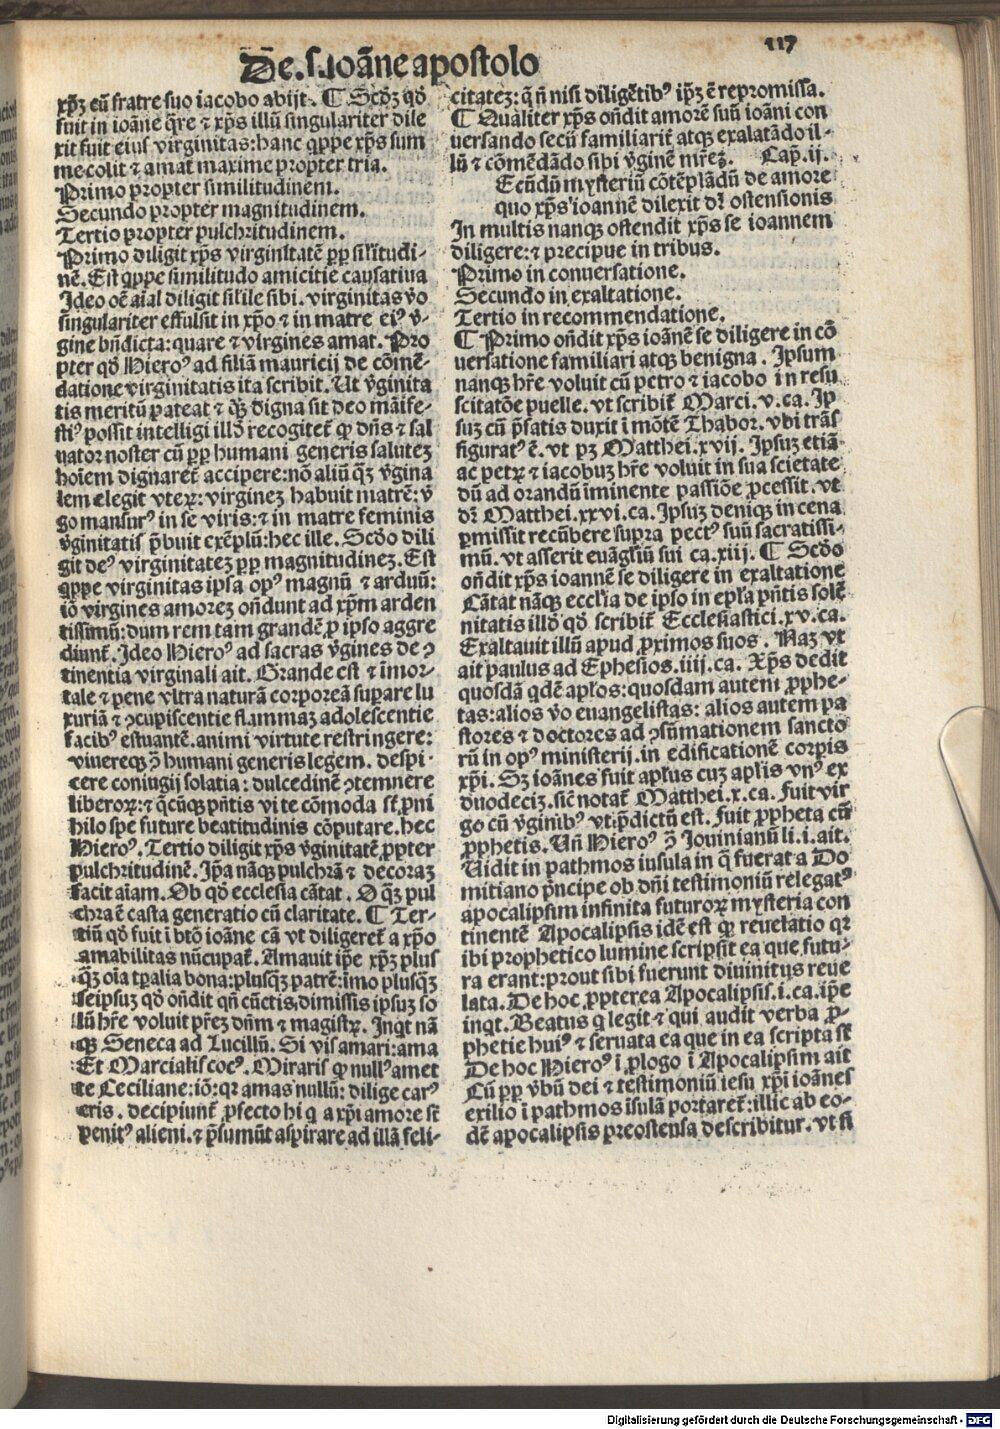 117
De .s. ioāne apostolo
xp̄ꝫ cū fratre suo iacobo abijt. ¶ Scd̄ꝫ qd̓
fuit in ioāne q̄re ⁊ xp̄s illū singulariter dile
xit fuit eius virginitas: hanc q̄ppe xp̄s sum
me colit ⁊ amat maxime propter tria.
Primo propter similitudinem.
Secundo propter magnitudinem.
Tertio propter pulchritudinem.
Primo diligit xp̄s virginitatē ꝓp̄ sil̓itudi-
nē. Est q̄ppe similitudo amicitie causatiua
Ideo oē aīal diligit sil̓ile sibi. virginitas v̓o
singulariter effulsit in xp̄o ⁊ in matre eiꝰ v̓-
gine bn̄dicta: quare ⁊ virgines amat. Pro
pter qd̓ Hieroꝰ ad filiā mauricij de cōmē-
datione virginitatis ita scribit. Ut v̓ginita
tis meritū pateat ⁊ qꝫ digna sit deo māife-
stiꝰ possit intelligi illd̓ recogitet ꝙ dn̄s ⁊ sal
uator noster cū ꝓp̄ humani generis salutez
hoīem dignaret accipere: nō aliū qꝫ v̓gina
lem elegit vteꝝ: virginez habuit matrē: v̓
go mansurꝰ in se viris: ⁊ in matre feminis
v̓ginitatis p̄buit exēplū: hec ille. Scd̓o dili
git deꝰ virginitatez ꝓp̄ magnitudinez. Est
q̄ppe virginitas ipsa opꝰ magnū ⁊ arduū:
iō virgines amorez on̄dunt ad xp̄m arden
tissimū: dum rem tam grandē ꝓ ipso aggre
diunt̄. Ideo Hieroꝰ ad sacras v̓gines de ꝯ
tinentia virginali ait. Grande est ⁊ īmor-
tale ⁊ pene vltra naturā corporeā suꝑare lu
xuriā ⁊ ꝯcupiscentie flammaꝫ adolescentie
facibꝰ estuantē. animi virtute restringere:
viuereqꝫ ꝯ̄ humani generis legem. despi-
cere coniugij solatia: dulcedinē ꝯtemnere
liberoꝝ: ⁊ q̄cūqꝫ pn̄tis vite cōmoda sꝉ ꝓ ni
hilo spe future beatitudinis cōputare. hec
Hieroꝰ. Tertio diligit xp̄s v̓ginitatē ꝓpter
pulchritudinē. Ip̄a nāqꝫ pulchrā ⁊ decoraꝫ
facit aīam. Ob qd̓ ecclesia cātat. O qꝫ pul
chra ē casta generatio cū claritate. ¶ Ter-
tiū qd̓ fuit ī btō ioāne cā vt diligeret̄ a xp̄o
amabilitas nūcupat̄. Amauit ip̄e xp̄ꝫ plus
qꝫ oīa tꝑalia bona: plusqꝫ patrē: imo plusqꝫ
seipsuꝫ qd̓ on̄dit qn̄ cūctis dimissis ipsuꝫ so
lū hr̄e voluit p̄rez dn̄m ⁊ magistꝝ. Inqt nā
qꝫ Seneca ad Lucillū. Si vis amari: ama
Et Marcialis cocꝰ. Miraris ꝙ nullꝰ amet
te Ceciliane: iō: qꝛ amas nullū: dilige carꝰ
eris. decipiunt̄ ꝓfecto hi q̄ a xp̄i amore sꝉ
penitꝰ alieni. ⁊ p̄sumūt aspirare ad illā feli-
citatez: q̄ n̄ nisi diligētibꝰ ip̄ꝫ ē repromissa.
¶ Qualiter xp̄s on̄dit amorē suū ioāni con
uersando secū familiarit̄ atqꝫ exalatādo il-
lū ⁊ cōmēdādo sibi v̓ginē mr̄eꝫ. Cap̄. ij.
Ecūdū mysteriū cōtēplādū de amore
quo xp̄s ioannē dilexit dr̄ ostensionis
In multis nanqꝫ ostendit xp̄s se ioannem
diligere: ⁊ precipue in tribus.
Primo in conuersatione.
Secundo in exaltatione.
Tertio in recommendatione.
¶ Primo on̄dit xp̄s ioānē se diligere in cō
uersatione familiari atqꝫ benigna. Ipsum
nanqꝫ hr̄e voluit cū petro ⁊ iacobo in resu
scitatōe puelle. vt scribit̄ Marci. v. ca. Ip
suꝫ cū p̄fatis duxit ī mōtē Thabor. vbi trās
figuratꝰ ē. vt pꝫ Matthei. xvij. Ipsuꝫ etiā
ac petꝝ ⁊ iacobuꝫ hr̄e voluit in sua scietate
dū ad orandū īminente passiōe ꝓcessit. vt
dr̄ Matthei. xxvi. ca. Ipsuꝫ deniqꝫ in cena
ꝑmissit recūbere supra pectꝰ suū sacratissi-
mū. vt asserit euāgliū sui ca. xiij. ¶ Scd̓o
on̄dit xp̄s ioannē se diligere in exaltatione
Cātat nāqꝫ eccl̓ia de ipso in ep̄la pn̄tis solē
nitatis illd̓ qd̓ scribit̄ Ecclesiastici. xv. ca.
Exaltauit illū apud ꝓximos suos. Naꝫ vt
ait paulus ad Ephesios. iiij. ca. Xp̄s dedit
quosdā qdē apl̓os: quosdam autem ꝓphe-
tas: alios v̓o euangelistas: alios autem pa
stores ⁊ doctores ad ꝯsūmationem sancto
rū in opꝰ ministerij. in edificationē corpis
xp̄i. Sꝫ ioānes fuit apl̓us cuꝫ apl̓is vnꝰ ex
duodeciꝫ. sic̄ notat̄ Matthei. x. ca. Fuit vir
go cū v̓ginibꝰ vt p̄dictū est. Fuit ꝓpheta cū
ꝓphetis. Un̄ Hieroꝰ ꝯ̄ Jouinianū li. i. ait.
Uidit in pathmos iusula in q̄ fuerat a Do
mitiano p̄ncipe ob dn̄i testimoniū relegatꝰ
apocalipsim infinita futuroꝝ mysteria con
tinentē Apocalipsis idē est ꝙ reuelatio qꝛ
ibi prophetico lumine scripsit ea que futu-
ra erant: prout sibi fuerunt diuinitus reue
lata. De hoc ꝓpterea Apocalipsis. i. ca. ip̄e
inqt. Beatus q̄ legit ⁊ qui audit verba ꝓ-
phetie huiꝰ ⁊ seruata ea que in ea scripta sꝉ
De hoc Hieroꝰ ī ꝓlogo ī Apocalipsim ait
Cū ꝓp̄ v̓bū dei ⁊ testimoniū iesu xp̄i ioānes
exilio ī pathmos isulā portaret̄: illic ab eo-
dē apocalipsis preostensa describitur. vt si
Digitalisierung gefördert durch die Deutsche Forschungsgemeinschaft - DFG